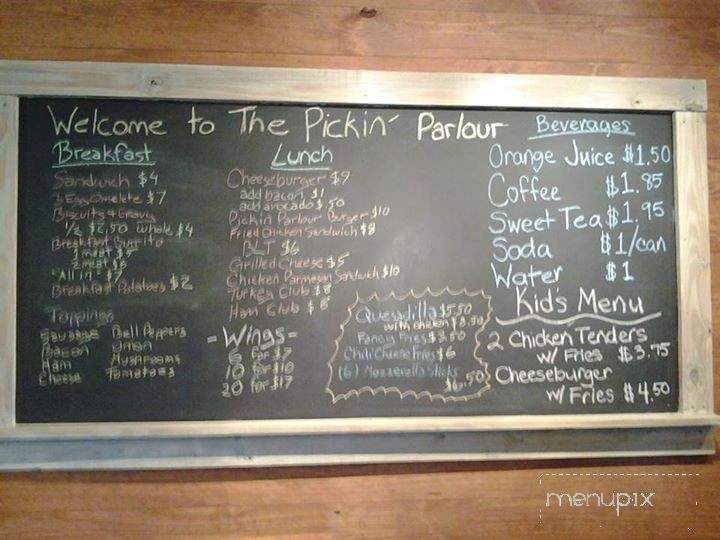 Welcome to The Pickin' Parlour
Breakfast
Sandwich $4
3 Egg Omelete $7
Biscuits + Gravy
1/2 $2.50 whole $4
Breakfast Burrito
1 meat $5
2 meat $6
"All in" $7
Breakfast Potatoes $2
Toppings
Sausage Bell Peppers
Bacon Onion
Ham Mushrooms
Cheese Tomatoes
Lunch
Cheeseburger $9
add bacon $1
add avocado $.50
Pickin Parlour Burger $10
Fried Chicken Sandwich $8
BLT $6
Grilled Cheese $5
Chicken Parmesan Sandwich $10
Turkey Club $8
Ham Club $8
- Wings -
6 for $7
10 for $10
20 for $17
Quesadilla $5.50
with chicken
Fancy Fries $3.50
Chili Cheese Fries $6
(6) Mozzerella Sticks
$6.50
Beverages
Orange Juice $1.50
Coffee $1.85
Sweet Tea $1.95
Soda $1/can
Water $1
Kid's Menu
2 Chicken Tenders
w/ Fries $3.75
Cheeseburger
w/ Fries $4.50
menupix